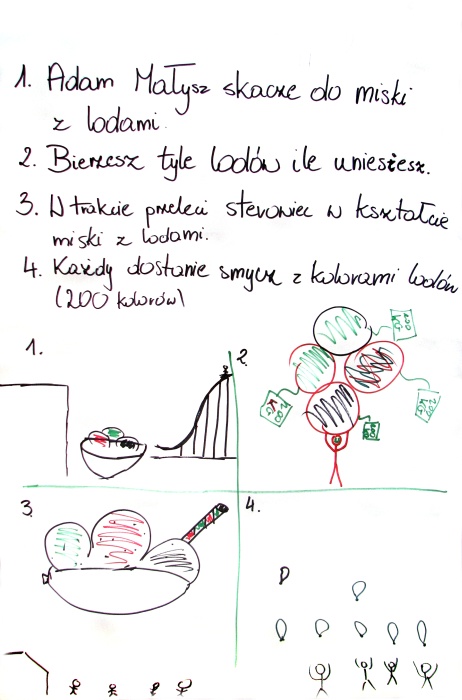 1. Adam Małysz skacze do miski
z lodami.
2. Bierzesz tyle lodów ile uniesiesz.
3. W trakcie przeleci sterowiec w kształcie
miski z lodami.
4. Każdy dostanie smycz z kolorami lodów
(200 kolorów)
1.
2.
200 KG
200 KG
200 KG
3.
4.